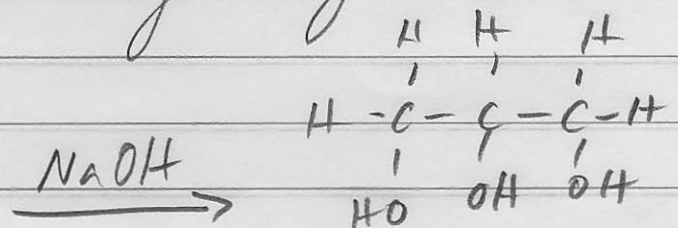 H H H
H - C - C - C - H
NaOH
HO OH OH